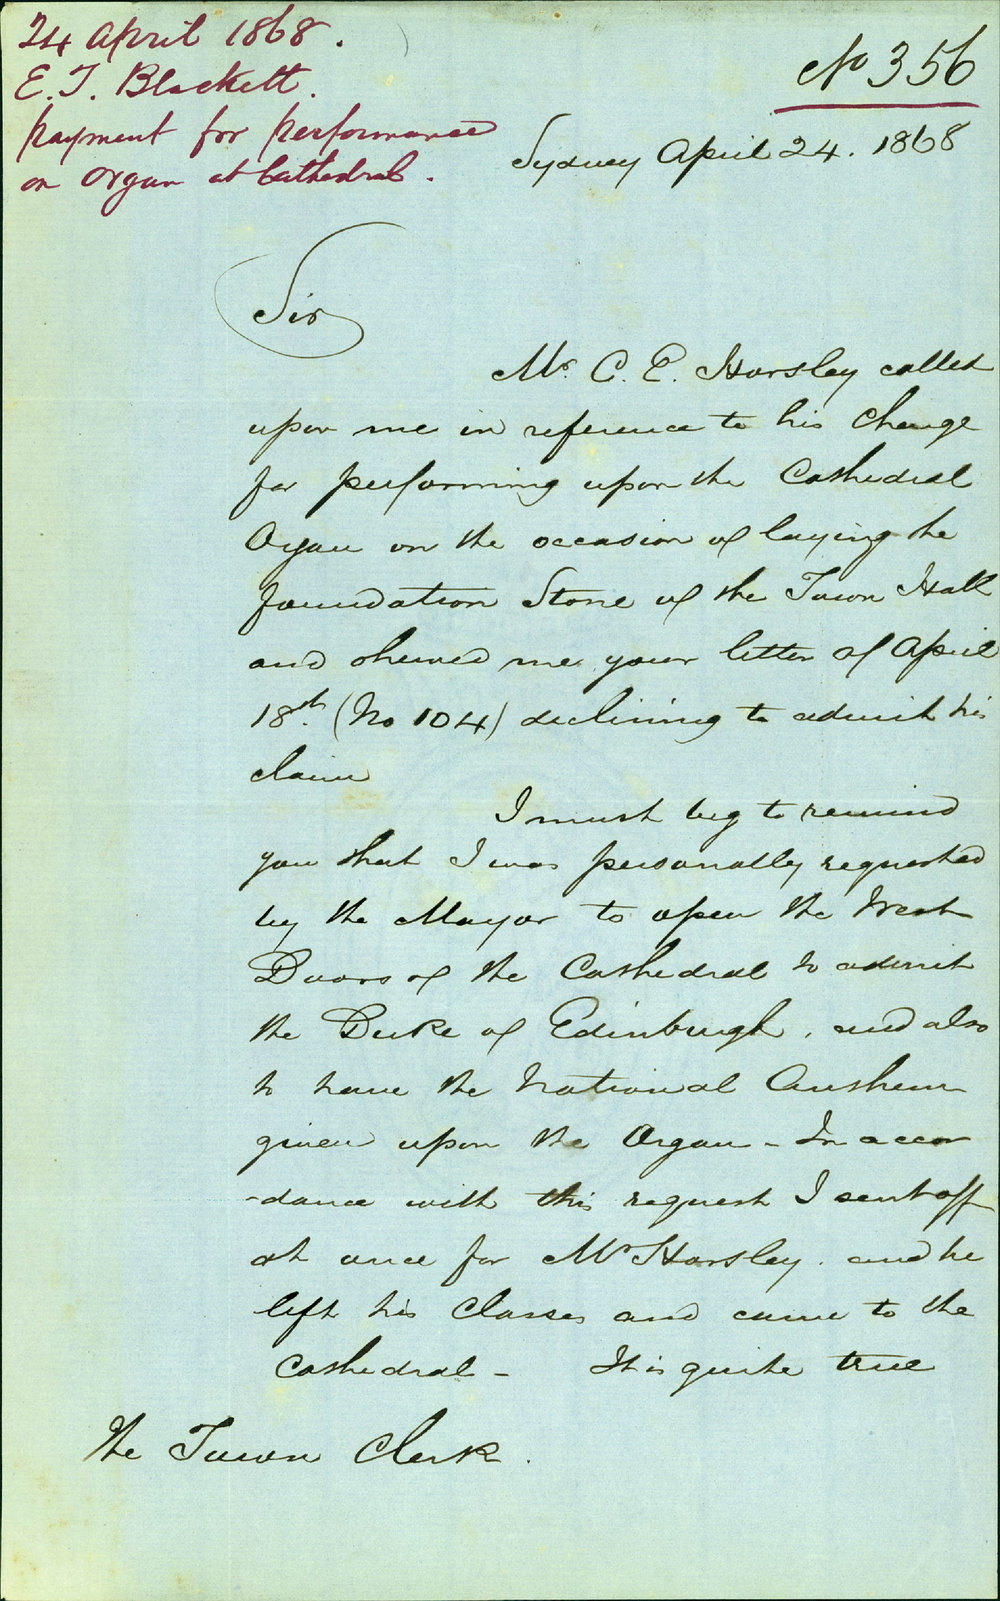 24 April 1868.
E. T. Blackett.
payment for performance
on organ at Cathedral.
No 356
Sydney April 24. 1868
Sir
Mr. C. E. Horsley called
upon me in reference to his charge
for performing upon the Cathedral
Organ on the occasion of laying the
foundation Stone of the Town Hall
and shewed me your letter of April
18th. (No 104) declining to admit his
claim
I must beg to remind
you that I was personally requested
by the Mayor to open the West
Doors of the Cathedral to admit
the Duke of Edinburgh, and also
to have the National Anthem
given upon the Organ - In accor
-dance with this request I sent off
at once for Mr Horsley. and he
left his Classes and came to the
Cathedral - It is quite true
The Town Clerk.